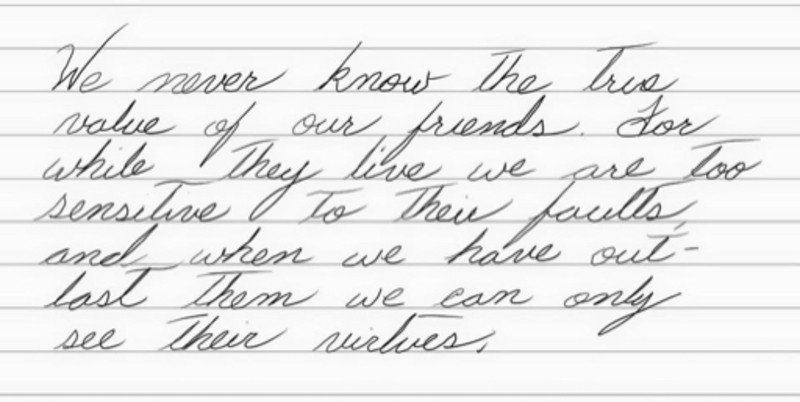 We never know the true
value of our friends. For
while they live we are too
sensitive to their faults,
and when we have out-
last them we can only
see their virtues.